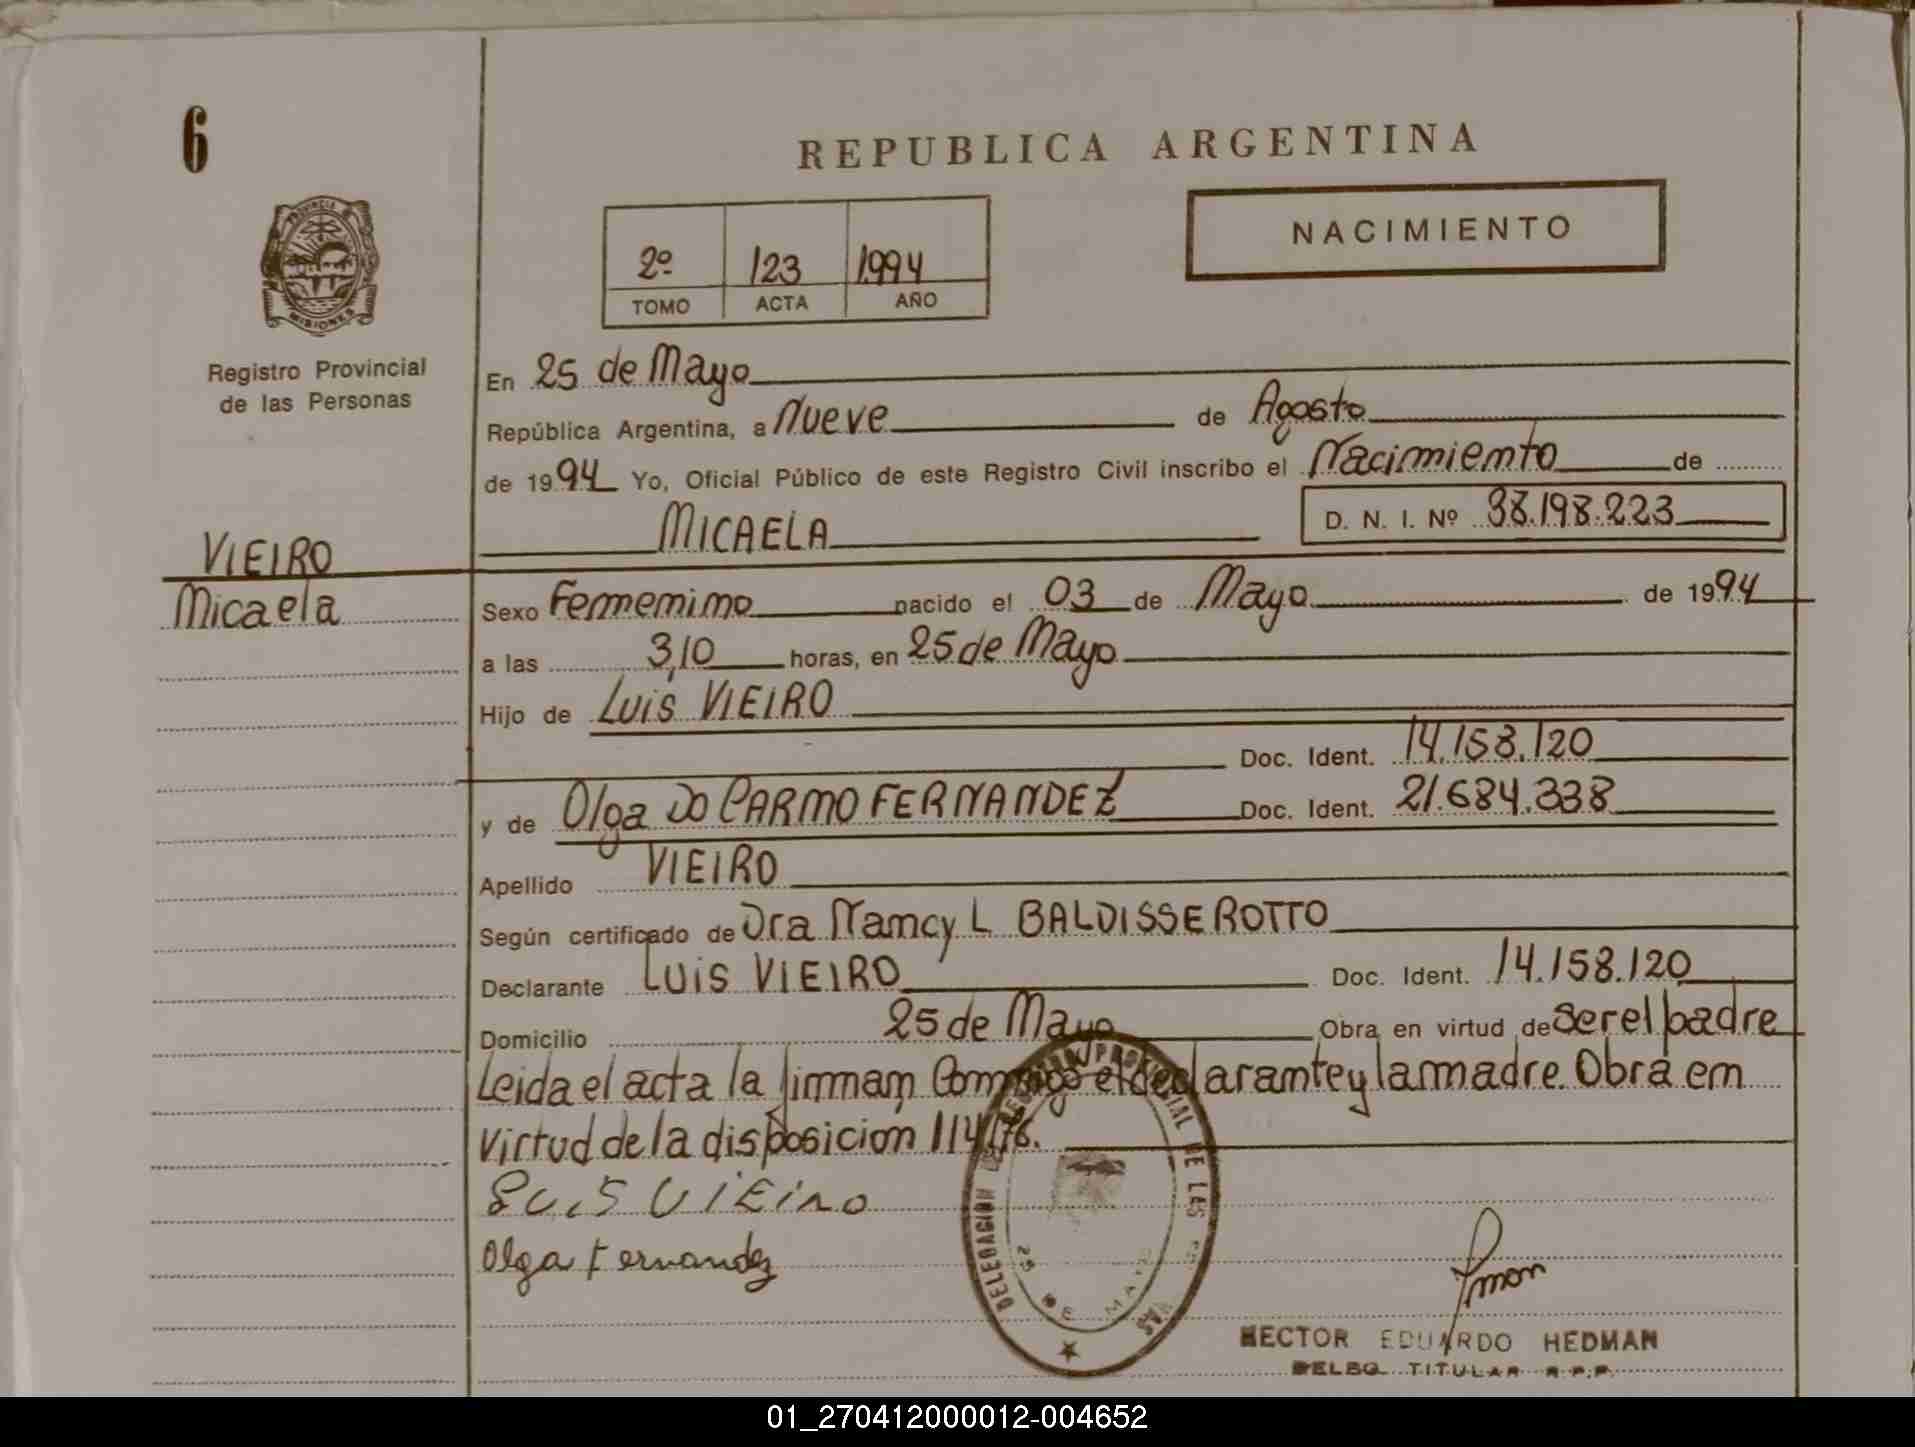 6
REPUBLICA ARGENTINA
NACIMIENTO
2º 123 1994
TOMO ACTA AÑO
PROVINCIA DE
MISIONES
Registro Provincial
de las Personas
En 25 de Mayo
República Argentina, a Nueve de Agosto
de 1994 Yo, Oficial Público de este Registro Civil inscribo el Nacimiento de
MICAELA D. N. I. Nº 38.198.223
VIEIRO
Micaela
Sexo Femenino nacido el 03 de Mayo de 1994
a las 3,10 horas, en 25 de Mayo
Hijo de Luis VIEIRO
Doc. Ident. 14.158.120
y de Olga DO CARMO FERNANDEZ Doc. Ident. 21.684.338
Apellido VIEIRO
Según certificado de Dra Nancy L BALDISSEROTTO
Declarante Luis VIEIRO Doc. Ident. 14.158.120
Domicilio 25 de Mayo Obra en virtud de ser el padre
Leida el acta la firman Conmigo el declarante y la madre. Obra en
virtud de la disposicion 114/76.
Luis Vieiro
Olga Fernandez
DELEGACION REGISTRO PROVINCIAL DE LAS
25 DE MAYO
HECTOR EDUARDO HEDMAN
DELEG. TITULAR R.P.P.
01_270412000012-004652